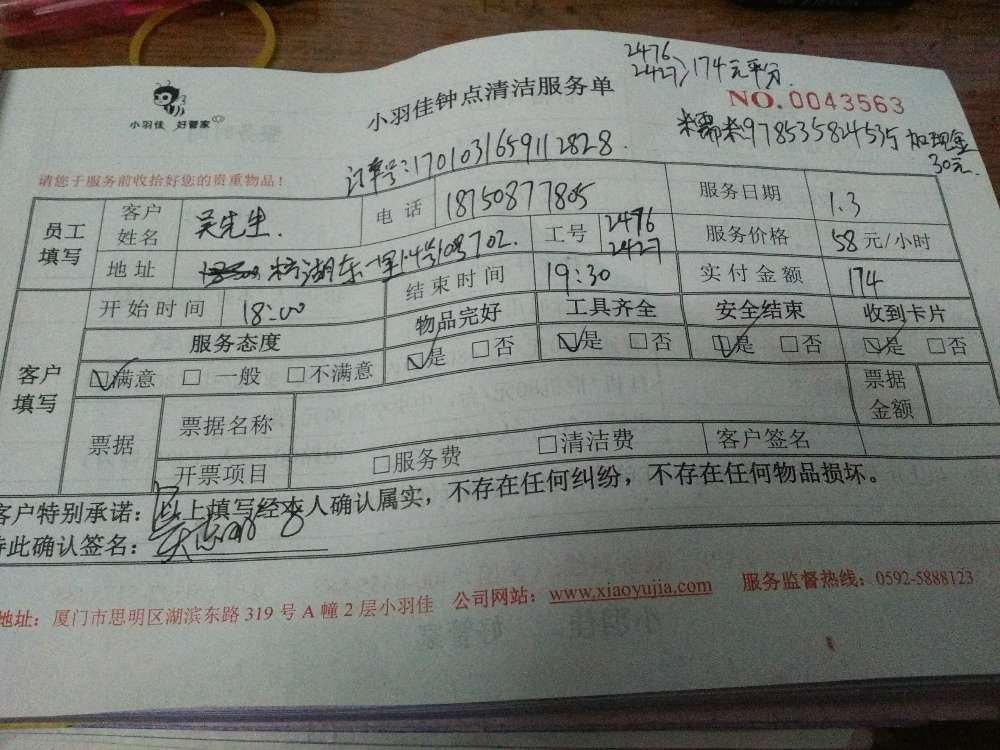 2476
2427 174元平分
小羽佳 好管家
小羽佳钟点清洁服务单
NO. 0043563
糯米978535824535 加现金
30元
订单号:1701031659112828
请您于服务前收拾好您的贵重物品!
员工填写 客户姓名 吴先生. 电话 18750877805 服务日期 1.3
地址 702. 工号 2476 2427 服务价格 58元/小时
客户填写 开始时间 18:00 结束时间 19:30 实付金额 174
服务态度 物品完好 工具齐全 安全结束 收到卡片
☑满意 □一般 □不满意 ☑是 □否 ☑是 □否 ☑是 □否 ☑是 □否
票据 票据名称 票据金额
开票项目 □服务费 □清洁费 客户签名
客户特别承诺:以上填写经本人确认属实,不存在任何纠纷,不存在任何物品损坏。
特此确认签名:
地址:厦门市思明区湖滨东路319号A幢2层小羽佳 公司网站:www.xiaoyujia.com 服务监督热线:0592-5888123